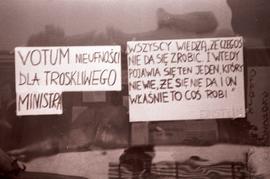 VOTUM NIEUFNOŚCI
DLA TROSKLIWEGO
MINISTRA
"WSZYSCY WIEDZĄ, ŻE CZEGOŚ
NIE DA SIĘ ZROBIĆ. I WTEDY
POJAWIA SIĘ TEN JEDEN, KTÓRY
NIE WIE, ŻE SIĘ NIE DA I ON
WŁAŚNIE TO COŚ ROBI"